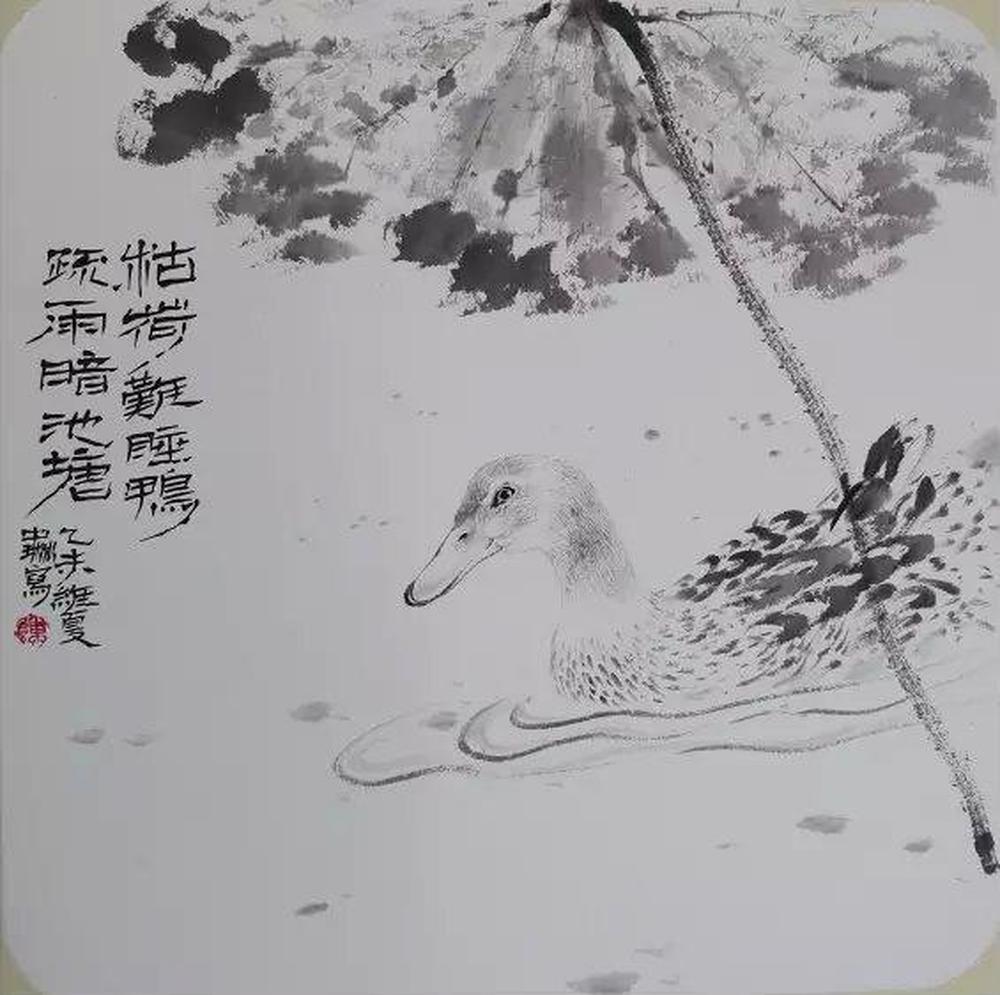 枯荷難睡鴨
疏雨暗池塘
乙未維夏
中琳寫